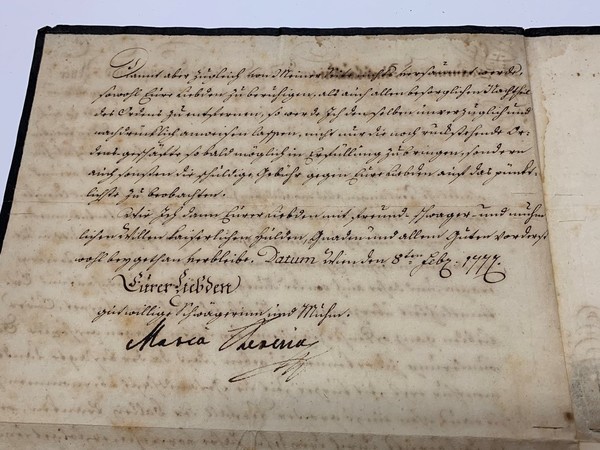 Damit aber zugleich von Meiner Seite nichts versäumet werde,
sowohl Eure Liebden zu beruhigen, als auch allen besorglichen Nachtheil
des Ordens zu entfernen, so werde Ich denselben unverzüglich und
nachdrücklich anweisen lassen, nicht nur die noch rückstehende Or-
dens geschäfte sobald möglich in Erfüllung zu bringen, sondern
auch sonsten die schuldige Gebühr gegen Eure Liebden auf das pünkt-
lichste zu beobachten.
Die Ich dann Eurer Liebden mit Freund- schwager- und muhm-
lichen Willen Kaiserlichen Hulden, Gnaden und allem Guten vorderst
wohl beygethan verbleibe. Datum Wien den 8ten Febr. 1777.
Eurer Liebden
gutwillige Schwägerin und Muhm.
Maria Theresia